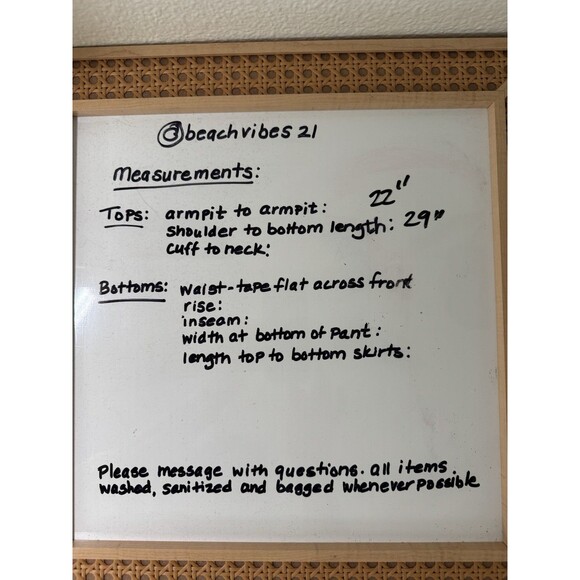 @beachvibes 21
Measurements:
Tops: armpit to armpit: 22"
shoulder to bottom length: 29"
cuff to neck:
Bottoms: waist-tape flat across front
rise:
inseam:
width at bottom of pant:
length top to bottom skirts:
Please message with questions. all items
washed, sanitized and bagged whenever possible